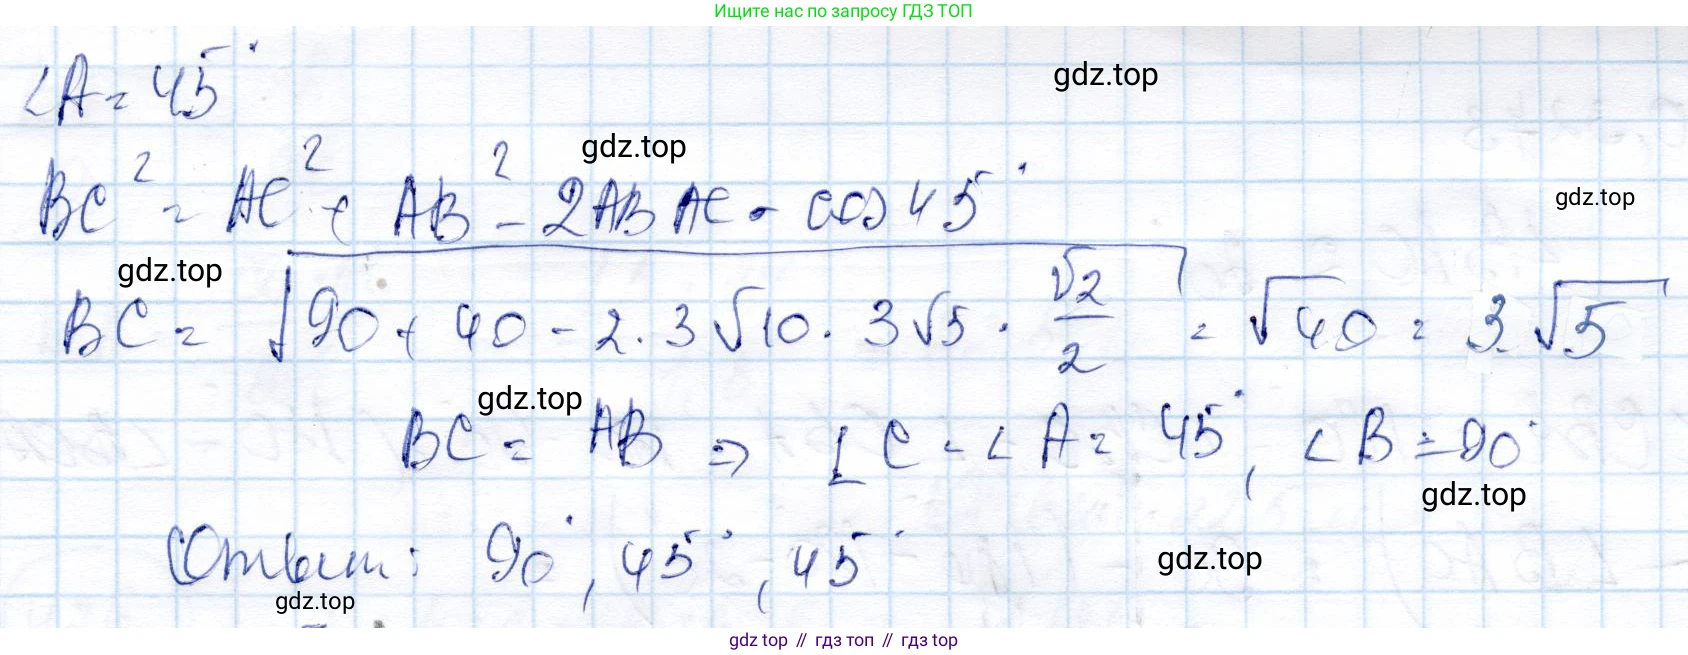 Ищите нас по запросу ГДЗ ТОП
∠A = 45°
gdz.top
BC² = AC² + AB² - 2AB AC · cos 45°
gdz.top
gdz.top
gdz.top
BC = √(90 + 40 - 2 · 3√10 · 3√5 · √2/2) = √40 = 3√5
gdz.top
BC = AB ⇒ ∠C = ∠A = 45°, ∠B = 90°
gdz.top
Ответ: 90°, 45°, 45°
gdz.top
gdz.top
gdz top // гдз топ // гдз top